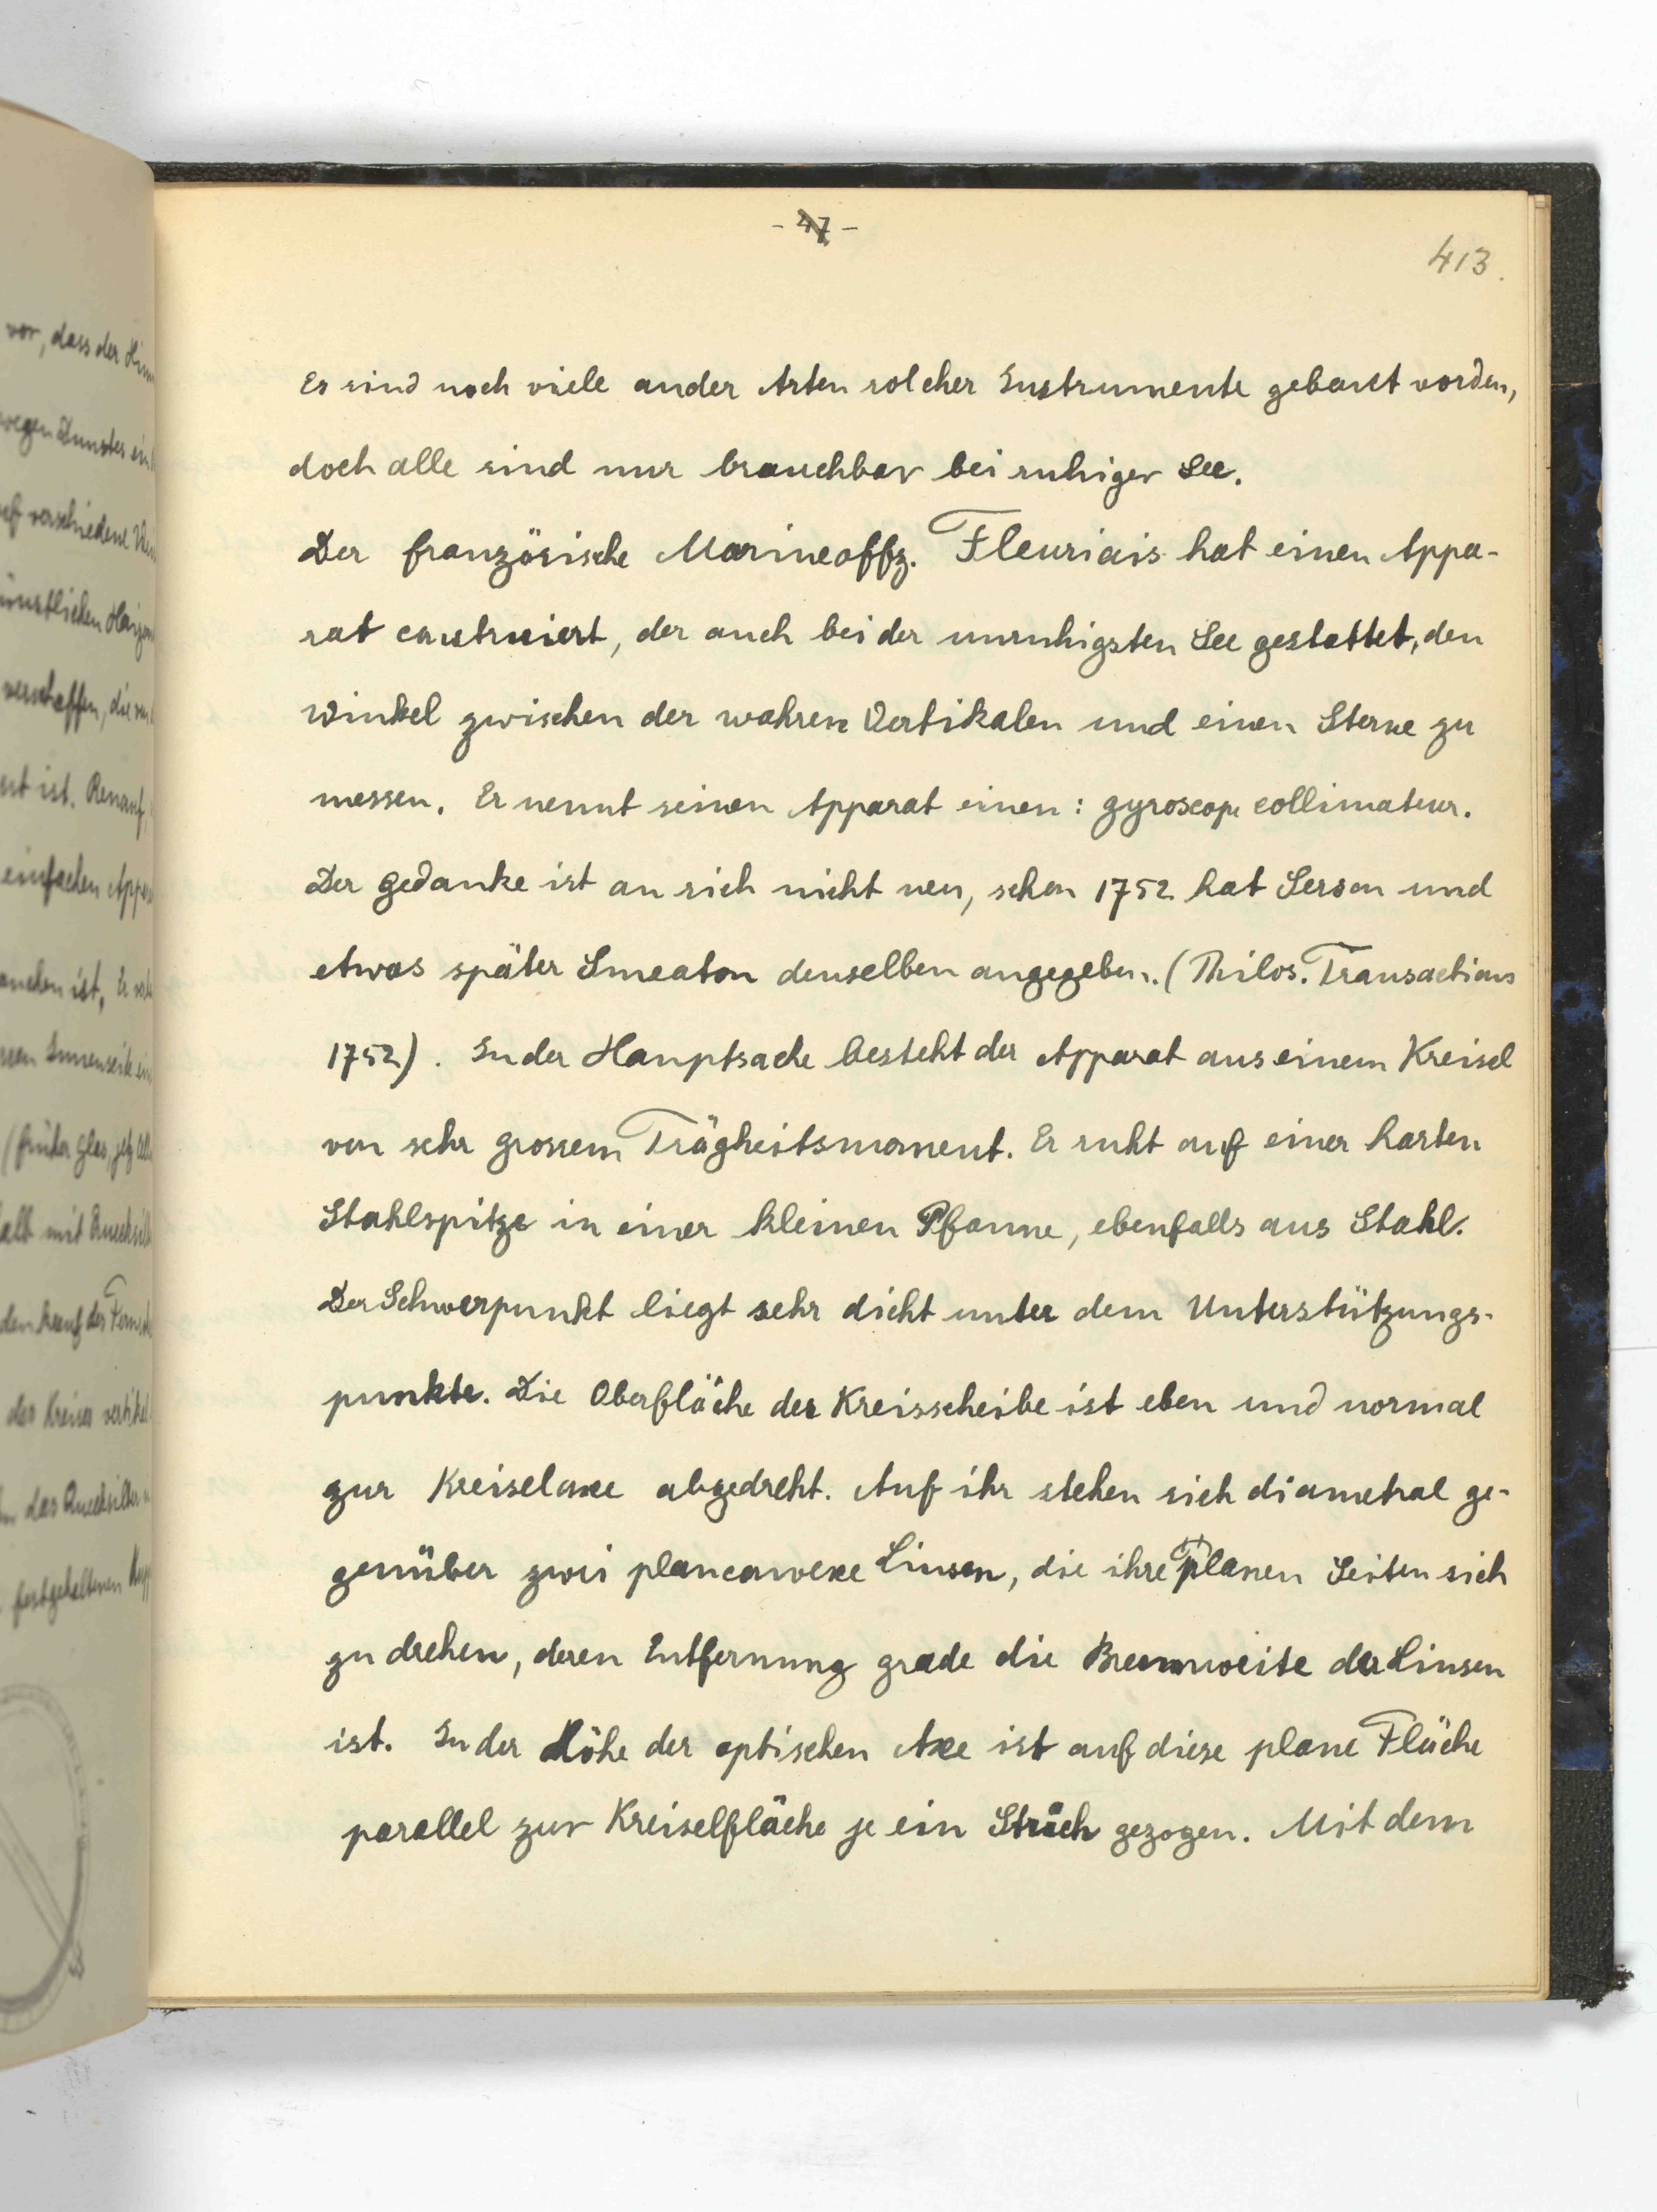 - 47 -
413.
Es sind noch viele ander Arten solcher Instrumente gebaut worden,
doch alle sind nur brauchbar bei ruhiger See.
Der französische Marineoffz. Fleuriais hat einen Appa-
rat construiert, der auch bei der unruhigsten See gestattet, den
Winkel zwischen der wahren Vertikalen und einen Sterne zu
messen. Er nennt seinen Apparat einen: gyroscope collimateur.
Der Gedanke ist an sich nicht neu, schon 1752 hat Serson und
etwas später Smeaton denselben angegeben. (Philos. Transactions
1752). In der Hauptsache besteht der Apparat aus einem Kreisel
von sehr grossem Trägheitsmoment. Er ruht auf einer harten
Stahlspitze in einer kleinen Pfanne, ebenfalls aus Stahl.
Der Schwerpunkt liegt sehr dicht unter dem Unterstützungs-
punkte. Die Oberfläche der Kreisscheibe ist eben und normal
zur Kreiselaxe abgedreht. Auf ihr stehen sich diametral ge-
genüber zwei planconvexe Linsen, die ihre planen Seiten sich
zu drehen, deren Entfernung grade die Brennweite der Linsen
ist. In der Höhe der optischen Axe ist auf diese plane Fläche
parallel zur Kreiselfläche je ein Strich gezogen. Mit dem
vor, dass der
wegen Dunstes
verschiedene
verschaffen, die
ist. Renauf,
einfachen
ist, Er
Innenseite
(früher Glas, jetz
mit
der Kreises
das Quecksilber
festgehaltenen